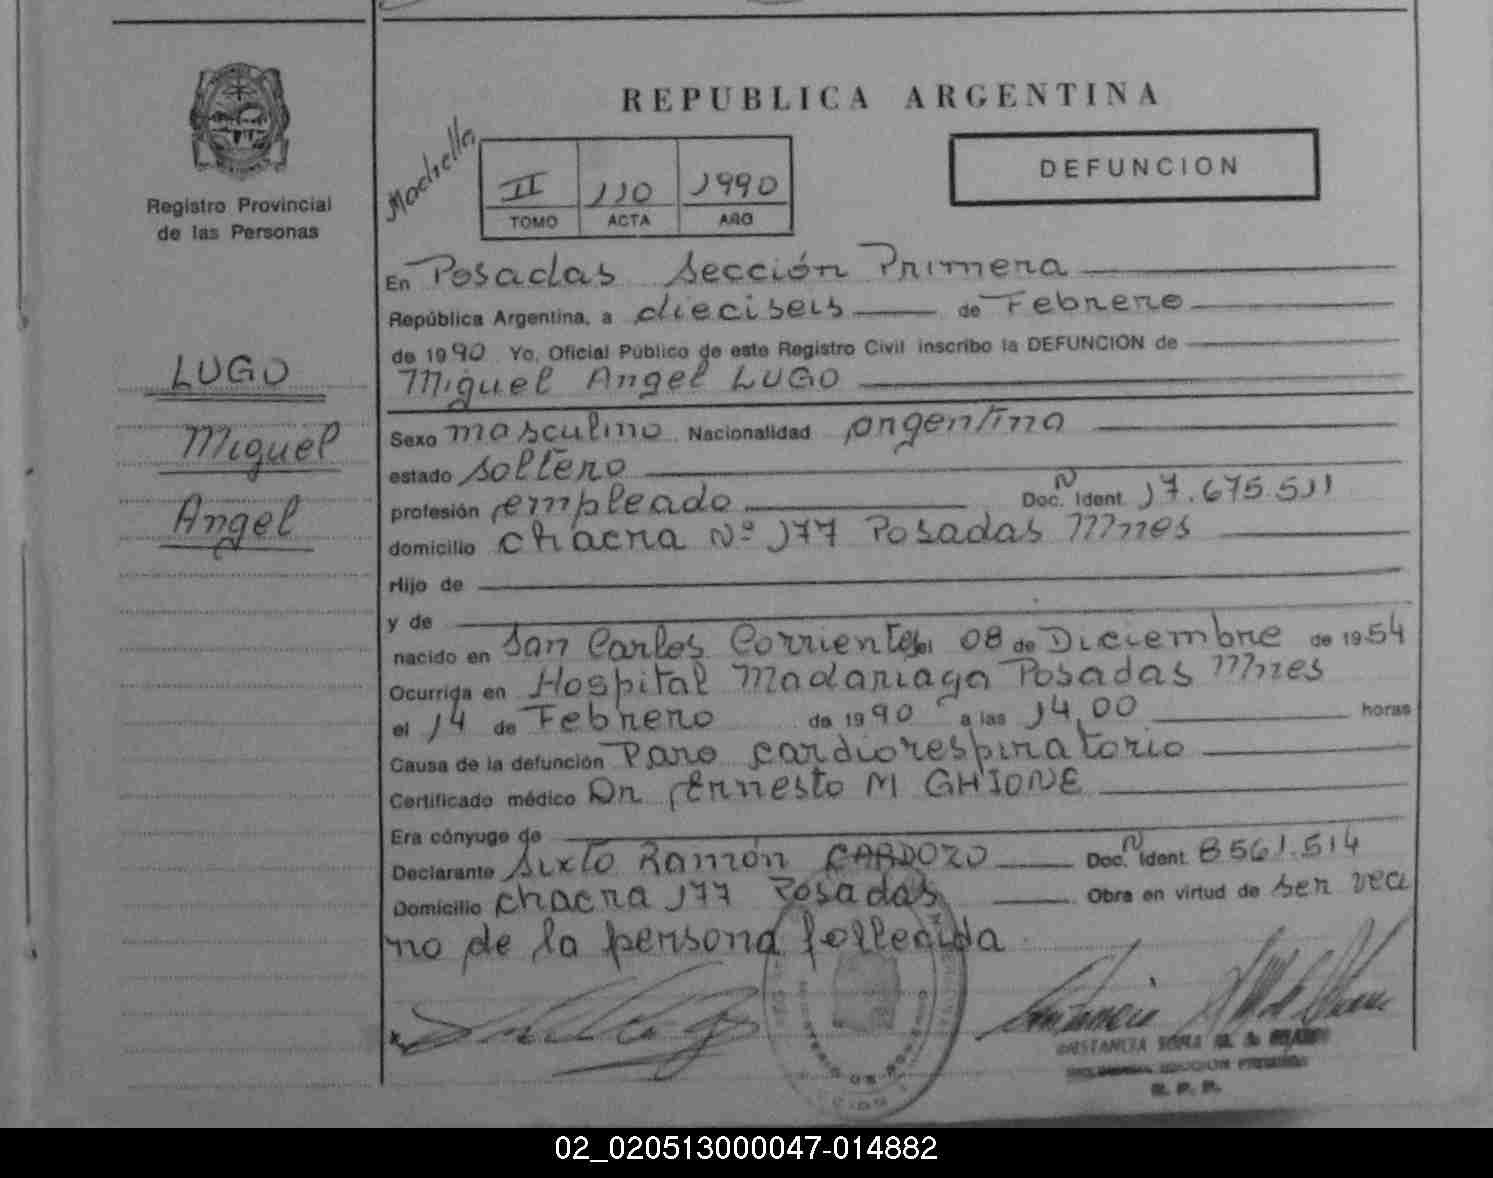 REPUBLICA ARGENTINA
Registro Provincial
de las Personas
II 110 1990
TOMO ACTA AÑO
DEFUNCION
LUGO
Miguel
Angel
En Posadas Sección Primera
República Argentina, a dieciseis de Febrero
de 1990 Yo, Oficial Público de este Registro Civil inscribo la DEFUNCION de
Miguel Angel LUGO
Sexo masculino Nacionalidad argentina
estado soltero
profesión empleado Doc. N Ident. 17.675.511
domicilio chacra Nº 177 Posadas Mnes
Hijo de
y de
nacido en San Carlos Corrientes el 08 de Diciembre de 1954
Ocurrida en Hospital Madariaga Posadas Mnes
el 14 de Febrero de 1990 a las 14,00 horas
Causa de la defunción Paro cardiorespiratorio
Certificado médico Dr. Ernesto M GHIONE
Era cónyuge de
Declarante Sixto Ramón CARDOZO Doc. N Ident. 8561.514
Domicilio chacra 177 Posadas Obra en virtud de ser veci
no de la persona fallecida
R. P. P.
02_020513000047-014882